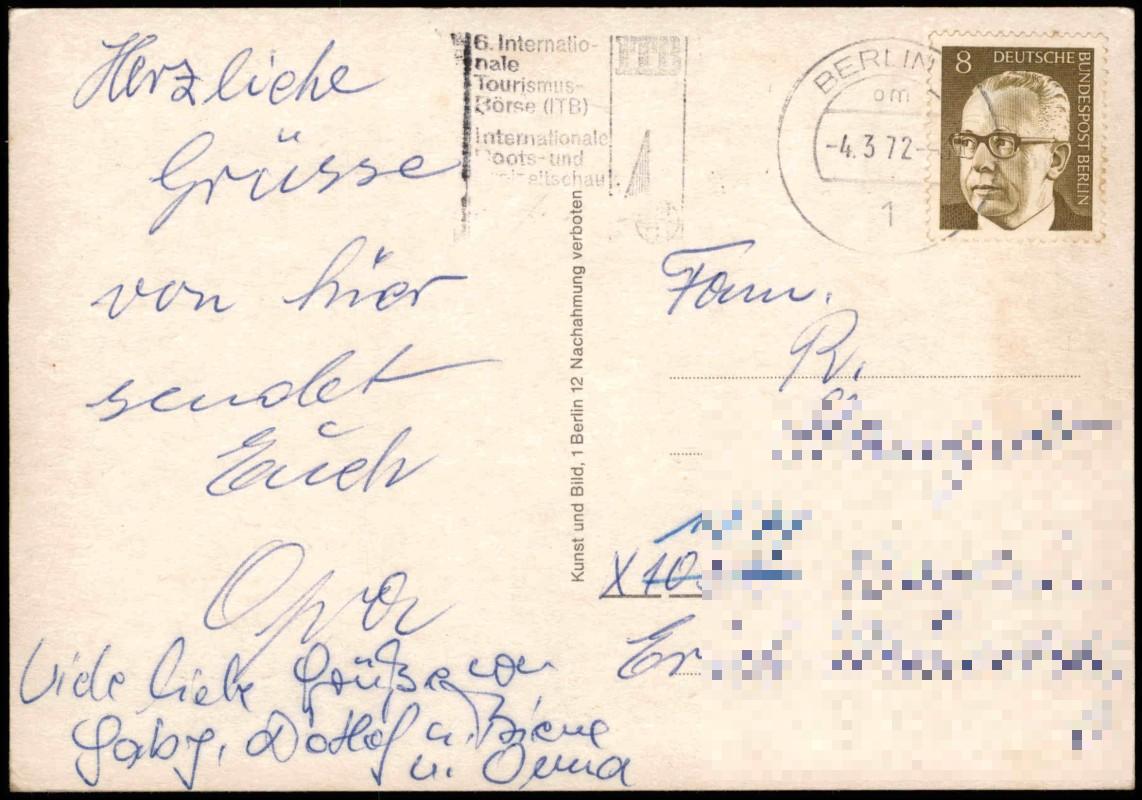 Herzliche
Grüsse
von hier
sendet
Euch
Opa
Viele liebe Grüße von
Gaby, Detlef u. Biene
u. Oma
6. Internatio-
nale
Tourismus-
Börse (ITB)
Internationale
Boots- und
Freizeitschau
ITB
BERLIN
-4.3.72
1
8 DEUTSCHE BUNDESPOST BERLIN
Kunst und Bild, 1 Berlin 12 Nachahmung verboten
Fam.
R.
X 10